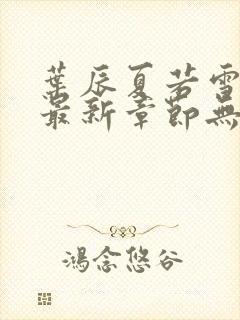 葉辰夏若雪
最新章節無
鴻念悠谷